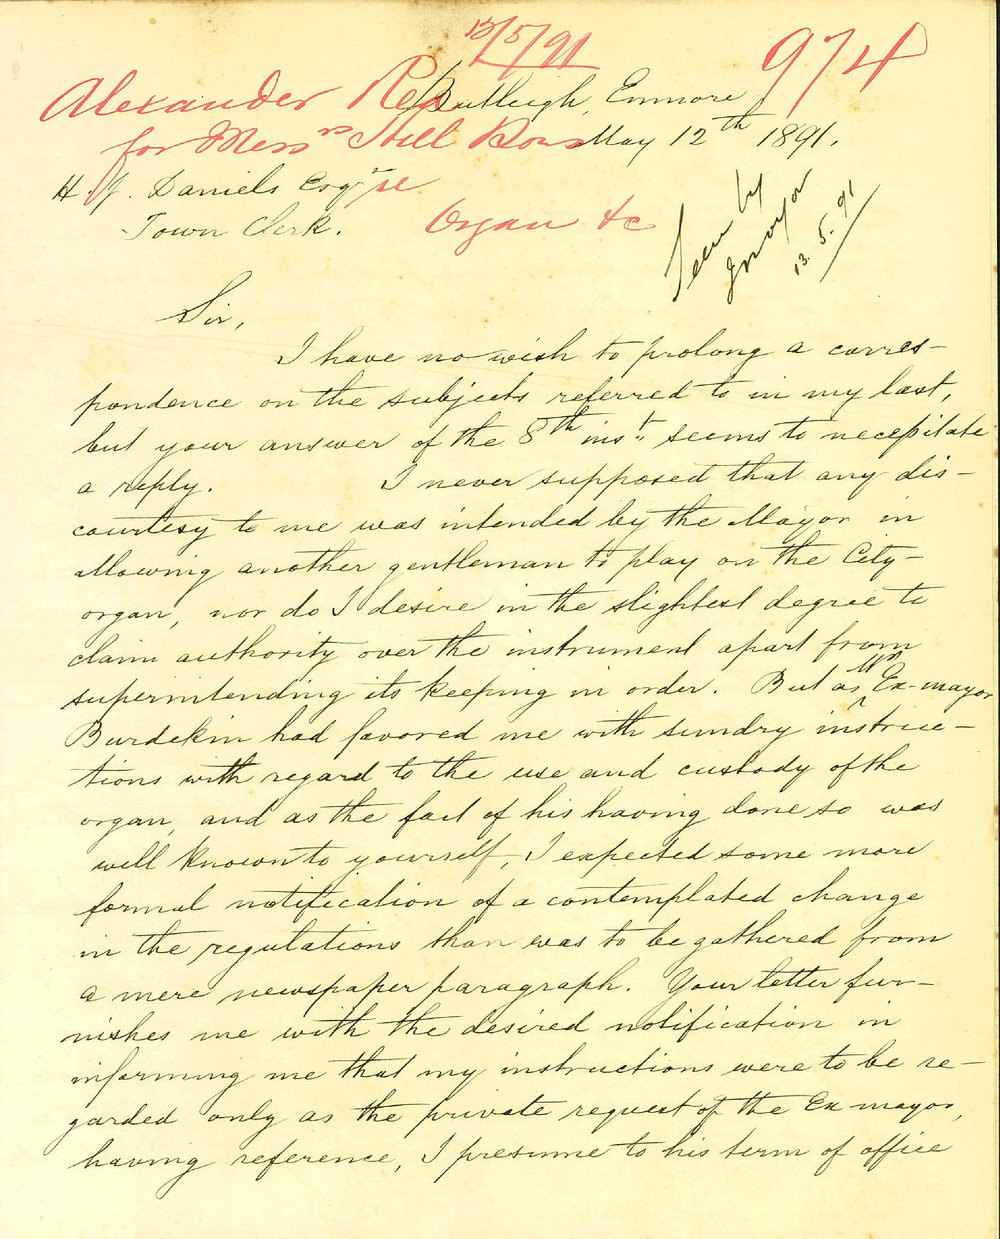 13/5/91
974
Alexander Rea
Butleigh, Enmore
for Messrs Hill & Son
May 12th 1891.
H. J. Daniels Esqre
Town Clerk.
Organ &c
Seen by
Mayor
13.5.91
Sir,
I have no wish to prolong a corres-
pondence on the subjects referred to in my last,
but your answer of the 8th inst. seems to necessitate
a reply. I never supposed that any dis-
courtesy to me was intended by the Mayor in
allowing another gentleman to play on the City
organ, nor do I desire in the slightest degree to
claim authority over the instrument apart from
superintending its keeping in order. But as Mr Ex-mayor
Burdekin had favored me with sundry instruc-
tions with regard to the use and custody of the
organ, and as the fact of his having done so was
well known to yourself, I expected some more
formal notification of a contemplated change
in the regulations than was to be gathered from
a mere newspaper paragraph. Your letter fur-
nishes me with the desired notification in
informing me that my instructions were to be re-
garded only as the private request of the Ex mayor,
having reference, I presume to his term of office